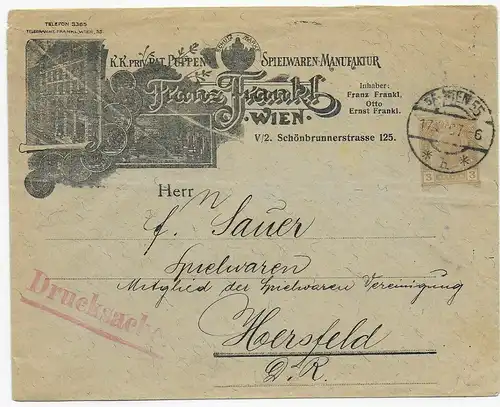 TELEFON 5365
TELEGRAMME: FRANKL, WIEN, 55.
SCHUTZ MARKE
K.K. PRIV. PAT. PUPPEN SPIELWAREN-MANUFAKTUR
Franz Frankl
WIEN
Inhaber:
Franz Frankl,
Otto
Ernst Frankl.
V/2. Schönbrunnerstrasse 125.
WIEN 55
6
3 3
Herrn
Sauer
Spielwaren
Mitglied der Spielwaren Vereinigung
Drucksache
Hersfeld
D. R.